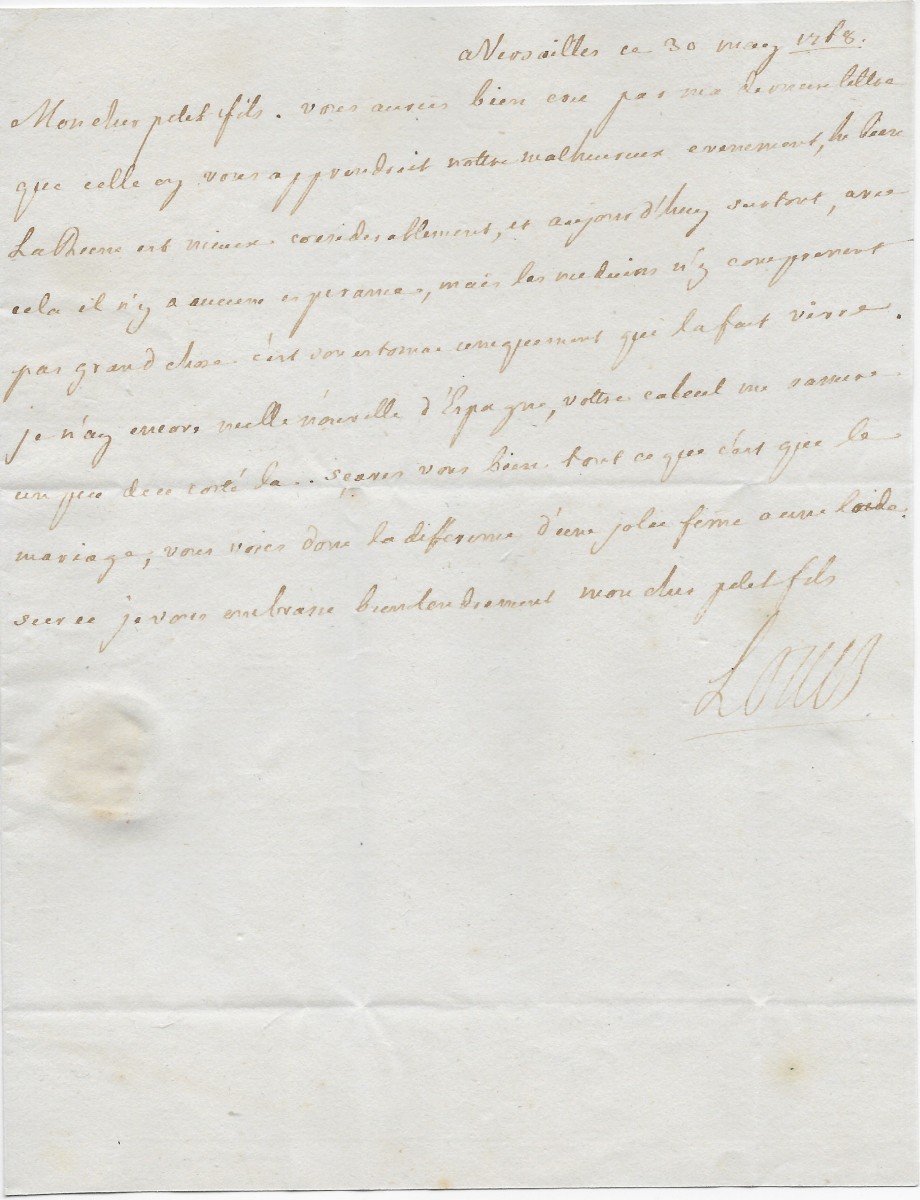 a Versailles ce 30 may 1768.
Mon cher petit fils. vous aurés bien cru par ma derniere lettre
que celle cy vous apprendroit nottre malheureux evenement, he bien
La Reine est mieux considerablement, et aujourd'huy surtout, avec
cela il n'y a aucune esperance, mais les medecins n'y comprenent
pas grand chose c'est son estomac uniquement qui la fait vivre.
je n'ay encore nulle nouvelle d'Espagne, vottre calcul me rassure
un peu de ce costé la.. sçavés vous bien tout ce que c'est que le
mariage, vous voiés donc la difference d'une jolie feme a une laide.
sur ce je vous embrasse bien tendrement mon cher petit fils
Louis